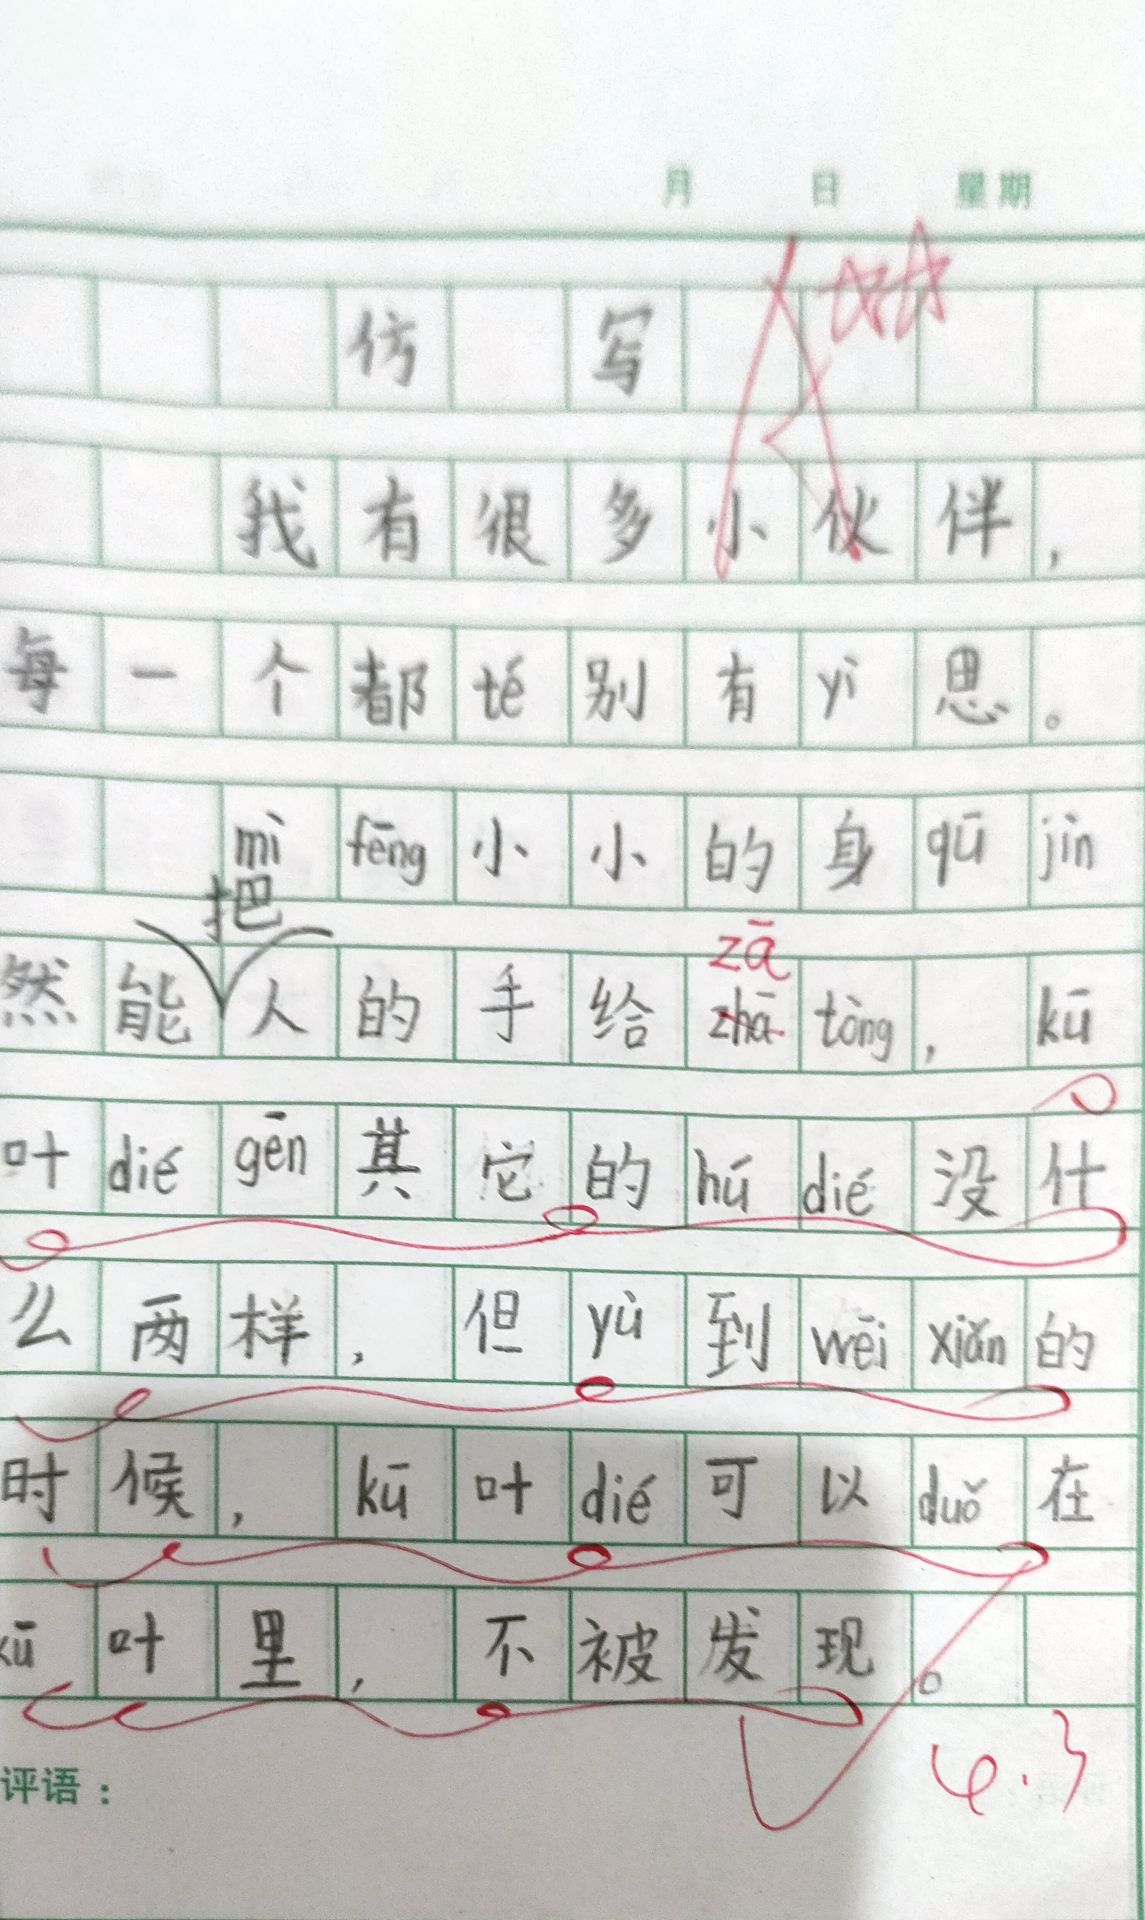 月 日 星期
仿 写
我有很多小伙伴，
每一个都té别有yì思。
mì fēng小小的身qū jìn
把
zā
然能人的手给zhā tòng，kū
叶dié gēn其它的hú dié没什
么两样，但yù到wēi xiǎn的
时候，kū叶dié可以duǒ在
kū叶里，不被发现。
评语：